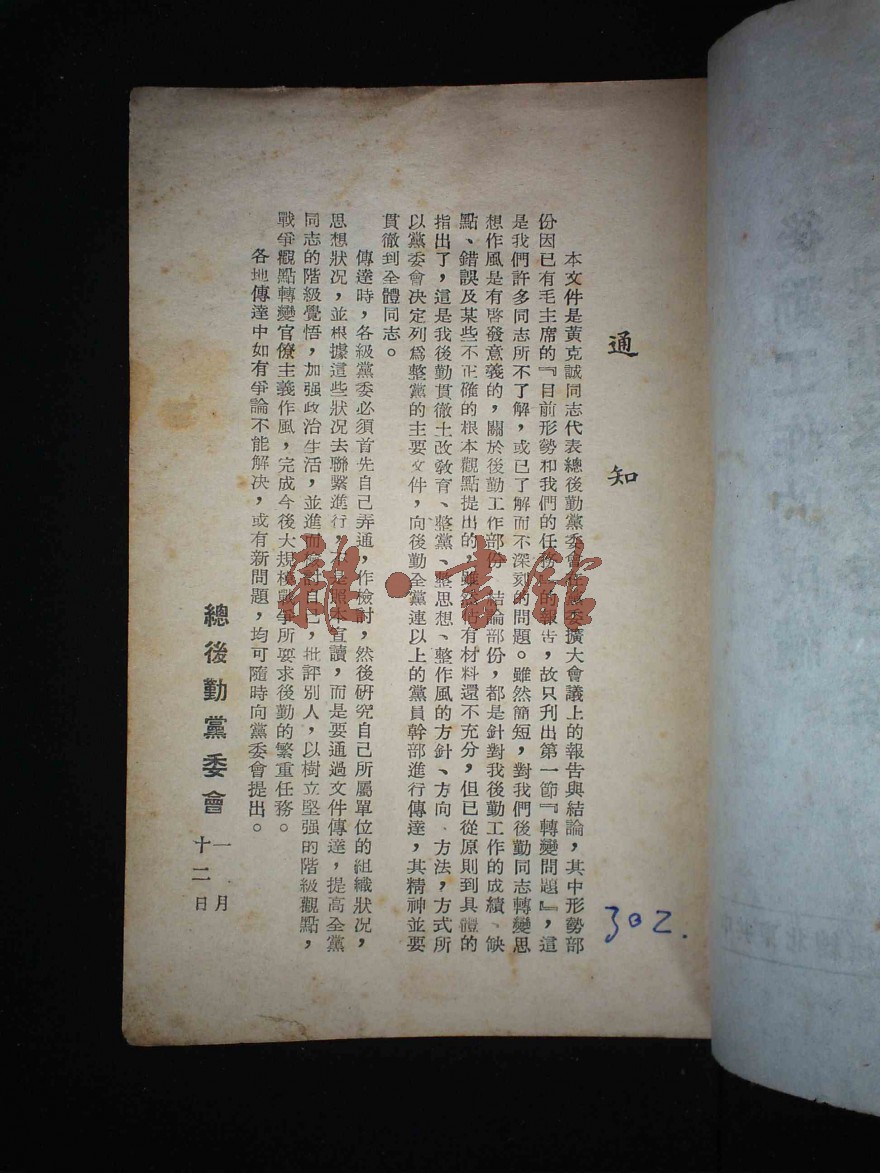 通知
本文件是黃克誠同志代表總後勤黨委會在黨委擴大會議上的報告與結論，其中形勢部
份因已有毛主席的『目前形勢和我們的任務』的報告，故只刋出第一節『轉變問題』，這
是我們許多同志所不了解，或已了解而不深刻的問題。雖然簡短，對我們後勤同志轉變思
想作風是有啓發意義的，關於後勤工作部份、結論部份，都是針對我後勤工作的成績、缺
點、錯誤及某些不正確的根本觀點提出的，雖然佔有材料還不充分，但已從原則到具體的
指出了，這是我後勤貫徹土改敎育、整黨、整思想、整作風的方針、方向、方法，方式所
以黨委會决定列爲整黨的主要文件，向後勤全黨連以上的黨員幹部進行傳達，其精神並要
貫徹到全體同志。
傳達時，各級黨委必須首先自己弄通，作檢討，然後硏究自己所屬單位的組織狀况，
思想狀况，並根據這些狀况去聯繫進行，不是照本宣讀，而是要通過文件傳達，提高全黨
同志的階級覺悟，加强政治生活，並進而檢討自己，批評別人，以樹立堅强的階級觀點，
戰爭觀點轉變官僚主義作風，完成今後大規模戰爭所要求後勤的繁重任務。
各地傳達中如有爭論不能解决，或有新問題，均可隨時向黨委會提出。
總後勤黨委會
一月
十二日
302.
雜·書館